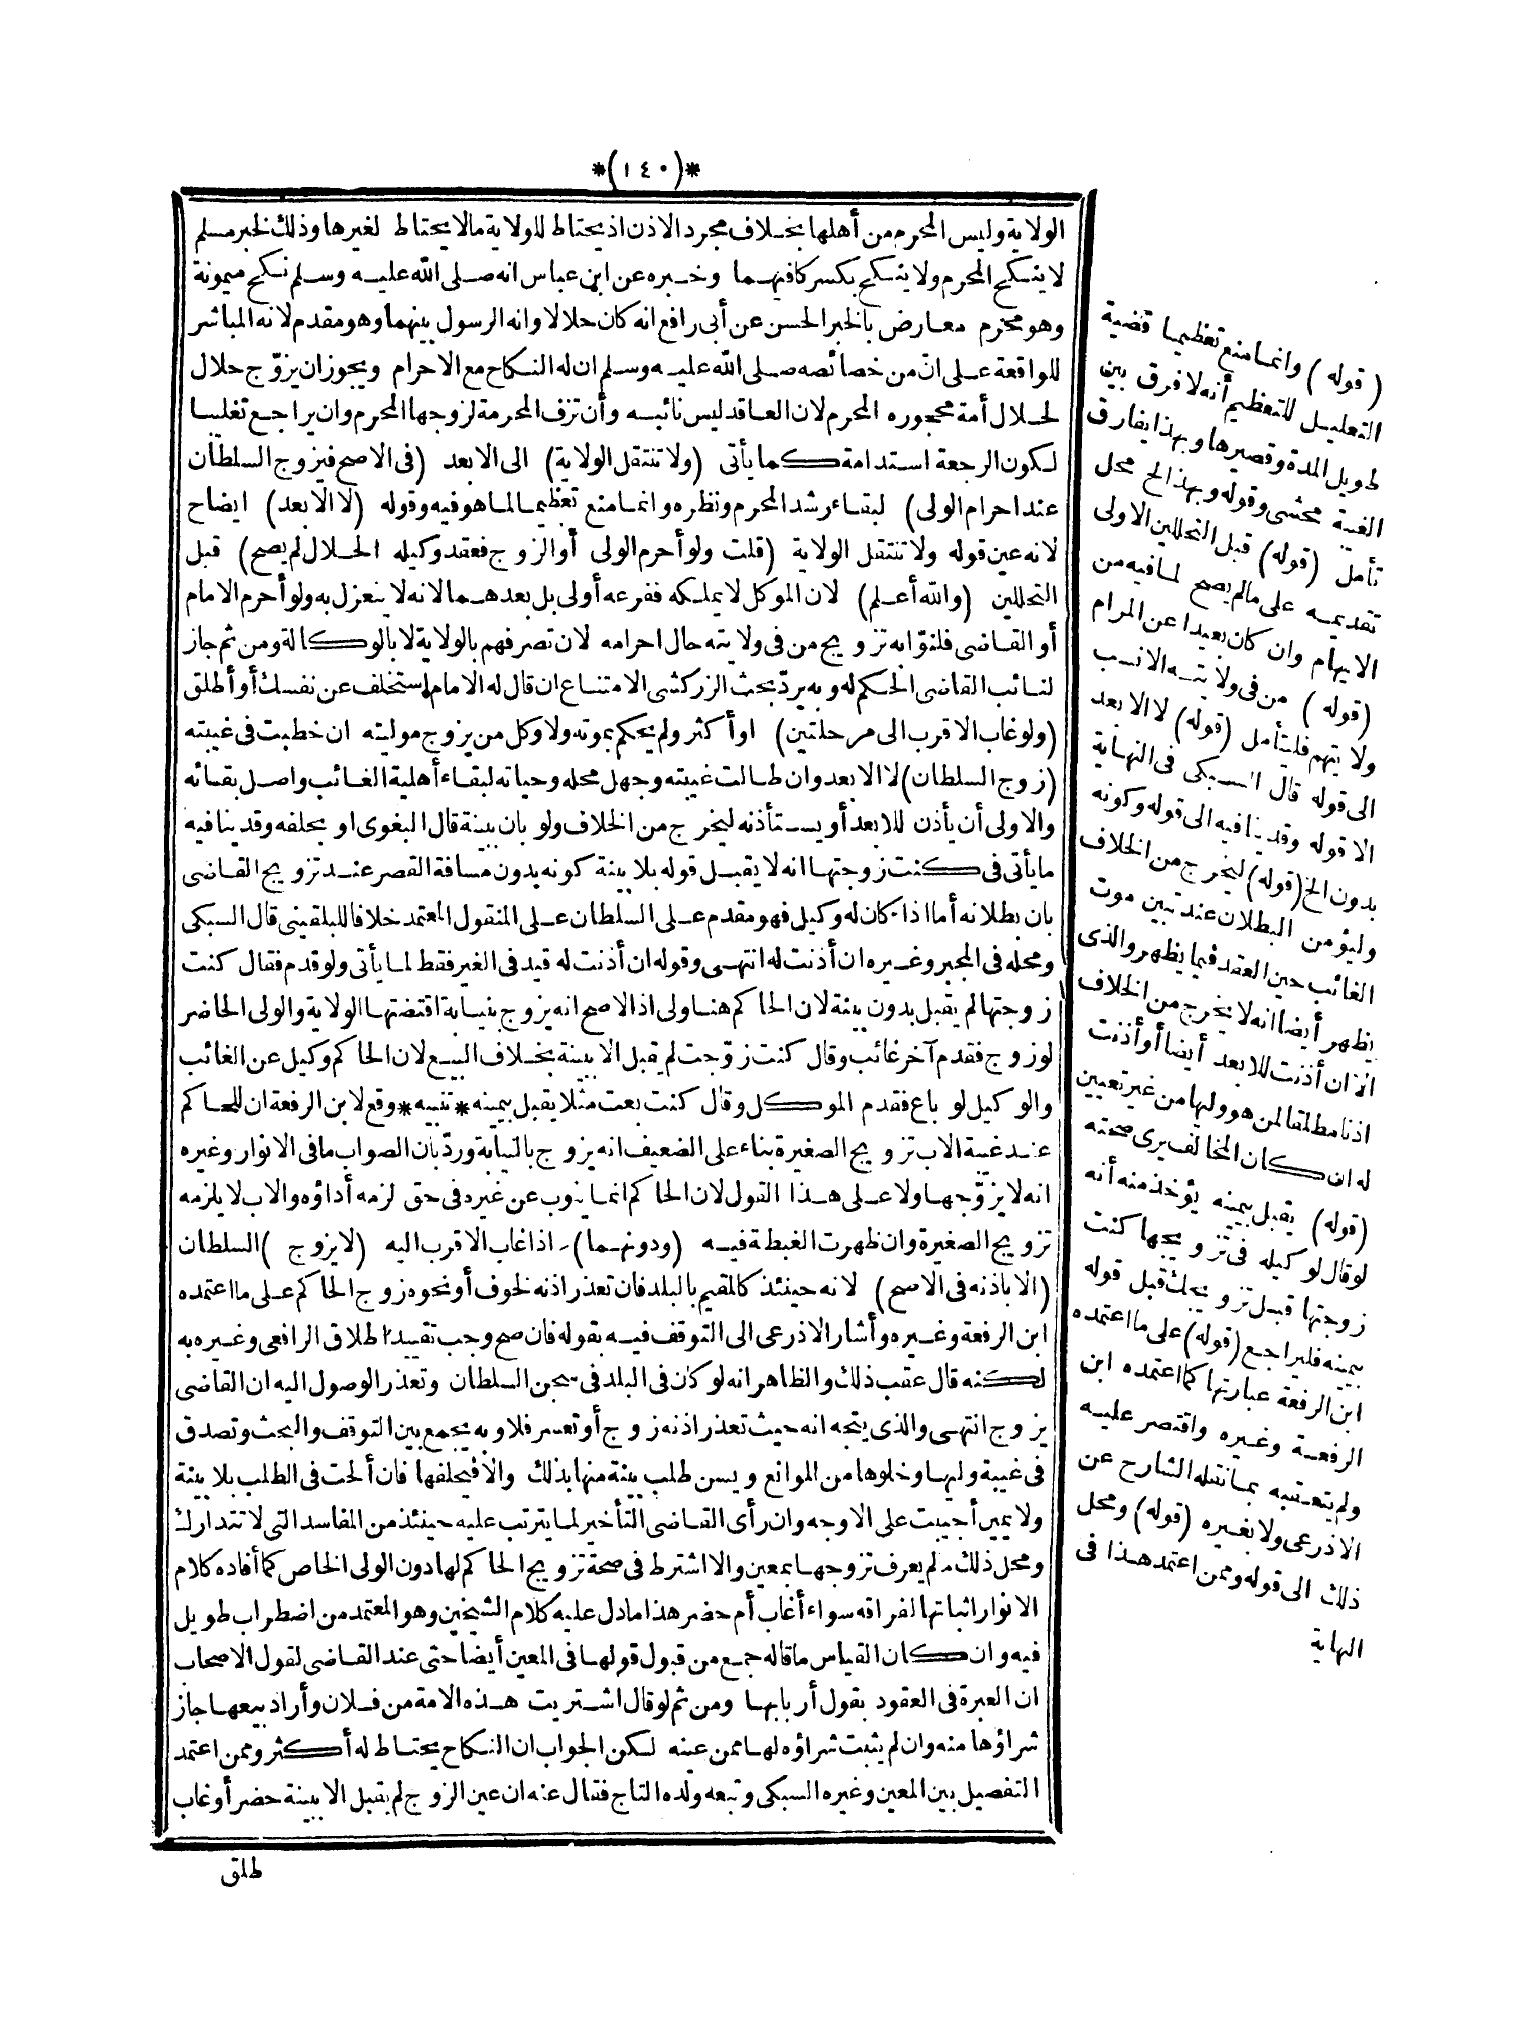 *(١٤٠)*
الولاية وليس المحرم من أهلها بخلاف مجرد الاذن اذ يحتاط للولاية مالا يحتاط لغيرها وذلك لخبر مسلم
لا ينكح المحرم ولا ينكح بكسر كافيهما وخبره عن ابن عباس انه صلى الله عليه وسلم نكح ميمونة
وهو محرم معارض بالخبر الحسن عن أبي رافع انه كان حلالا وانه الرسول بينهما وهو مقدم لانه المباشر
للواقعة على ان من خصائصه صلى الله عليه وسلم ان له النكاح مع الاحرام ويجوز ان يزوّج حلال
لحلال أمة محجوره المحرم لان العاقد ليس نائبه وأن تزف المحرمة لزوجها المحرم وان يراجع تغليبا
لكون الرجعة استدامة كما يأتى (ولا تنتقل الولاية) الى الابعد (فى الاصح فيزوج السلطان
عند احرام الولى) لبقاء رشد المحرم ونظره وانما منع تعظيما لما هو فيه وقوله (لا الابعد) ايضاح
لانه عين قوله ولا تنتقل الولاية (قلت ولو أحرم الولى أو الزوج فعقد وكيله الحلال لم يصح) قبل
التحللين (والله أعلم) لان الموكل لا يملكه ففرعه أولى بل بعدهما لانه لا ينعزل به ولو أحرم الامام
أو القاضى فلنوّابه تزويج من فى ولايته حال احرامه لان تصرفهم بالولاية لا بالوكالة ومن ثم جاز
لنائب القاضى الحكم له وبه يردّ بحث الزركشى الامتناع ان قال له الامام استخلف عن نفسك أو أطلق
(ولو غاب الاقرب الى مرحلتين) او أكثر ولم يحكم بموته ولا وكل من يزوج موليته ان خطبت فى غيبته
(زوج السلطان) لا الابعد وان طالت غيبته وجهل محله وحياته لبقاء أهلية الغائب واصل بقائه
والاولى أن يأذن للابعد أو يستأذنه ليخرج من الخلاف ولو بان ببينة قال البغوى او بحلفه وقد ينافيه
ما يأتى فى كنت زوجتها انه لا يقبل قوله بلا بينة كونه بدون مسافة القصر عند تزويج القاضى
بان بطلانه أما اذا كان له وكيل فهو مقدم على السلطان على المنقول المعتمد خلافا للبلقينى قال السبكى
ومحله فى المجبر وغيره ان أذنت له انتهى وقوله ان أذنت له قيد فى الغير فقط لما يأتى ولو قدم فقال كنت
زوجتها لم يقبل بدون بينة لان الحاكم هنا ولى اذ الاصح انه يزوج بنيابة اقتضتها الولاية والولى الحاضر
لو زوج فقدم آخر غائب وقال كنت زوّجت لم يقبل الا ببينة بخلاف البيع لان الحاكم وكيل عن الغائب
والوكيل لو باع فقدم الموكل وقال كنت بعت مثلا يقبل بيمينه *تنبيه* وقع لابن الرفعة ان للحاكم
عند غيبة الاب تزويج الصغيرة بناء على الضعيف انه يزوج بالنيابة وردّ بان الصواب ما فى الانوار وغيره
انه لا يزوّجها ولا على هذا القول لان الحاكم انما ينوب عن غيره فى حق لزمه أداؤه والاب لا يلزمه
تزويج الصغيرة وان ظهرت الغبطة فيه (ودونهما) اذا غاب الاقرب اليه (لا يزوج) السلطان
(الا باذنه فى الاصح) لانه حينئذ كالمقيم بالبلد فان تعذر اذنه لخوف أو نحوه زوج الحاكم على ما اعتمده
ابن الرفعة وغيره وأشار الاذرعى الى التوقف فيه بقوله فان صح وجب تقييد اطلاق الرافعى وغيره به
لكنه قال عقب ذلك والظاهر انه لو كان فى البلد فى سجن السلطان وتعذر الوصول اليه ان القاضى
يزوج انتهى والذى يتجه انه حيث تعذر اذنه زوج أو تعسر فلا وبه يجمع بين التوقف والبحث وتصدق
فى غيبة وليها وخلوها من الموانع ويسن طلب بينة منها بذلك والا فيحلفها فان ألحت فى الطلب بلا بينة
ولا يمين أجيبت على الاوجه وان رأى القاضى التأخير لما يترتب عليه حينئذ من المفاسد التى لا تتدارك
ومحل ذلك ما لم يعرف تزوجها بمعين والا اشترط فى صحة تزويج الحاكم لها دون الولى الخاص كما أفاده كلام
الانوار اثباتها لفراقه سواء أغاب أم حضر هذا ما دل عليه كلام الشيخين وهو المعتمد من اضطراب طويل
فيه وان كان القياس ما قاله جمع من قبول قولها فى المعين أيضا حتى عند القاضى لقول الاصحاب
ان العبرة فى العقود بقول أربابها ومن ثم لو قال اشتريت هذه الامة من فلان وأراد بيعها جاز
شراؤها منه وان لم يثبت شراؤه لها ممن عينه لكن الجواب ان النكاح يحتاط له أكثر وممن اعتمد
التفصيل بين المعين وغيره السبكى وتبعه ولده التاج فقال عنه ان عين الزوج لم يقبل الا ببينة حضر أو غاب
طلق
(قوله) وانما منع تعظيما قضية
التعليل للتعظيم أنه لا فرق بين
طويل المدة وقصيرها وبهذا يفارق
الغيبة محشى وقوله وبهذا الخ محل
تأمل (قوله) قبل التحللين الاولى
تقديمه على ما لم يصح لما فيه من
الايهام وان كان بعيدا عن المرام
(قوله) من فى ولايته الانسب
ولايتهم فليتأمل (قوله) لا الابعد
الى قوله قال السبكى فى النهاية
الا قوله وقد ينافيه الى قوله وكونه
بدون الخ (قوله) ليخرج من الخلاف
وليؤمن البطلان عند تبين موت
الغائب حين العقد فيما يظهر والذى
يظهر أيضا انه لا يخرج من الخلاف
الا ان أذنت للابعد أيضا أو أذنت
اذنا مطلقا لمن هو وليها من غير تعيين
له ان كان المخالف يرى صحته
(قوله) يقبل بيمينه يؤخذ منه أنه
لو قال لوكيله فى تزويجها كنت
زوجتها قبل تزويجك قبل قوله
بيمينه فليراجع (قوله) على ما اعتمده
ابن الرفعة عبارتها كما اعتمده ابن
الرفعة وغيره واقتصر عليه
ولم يتعقبه بما نقله الشارح عن
الاذرعى ولا بغيره (قوله) ومحل
ذلك الى قوله وممن اعتمد هذا فى
النهاية